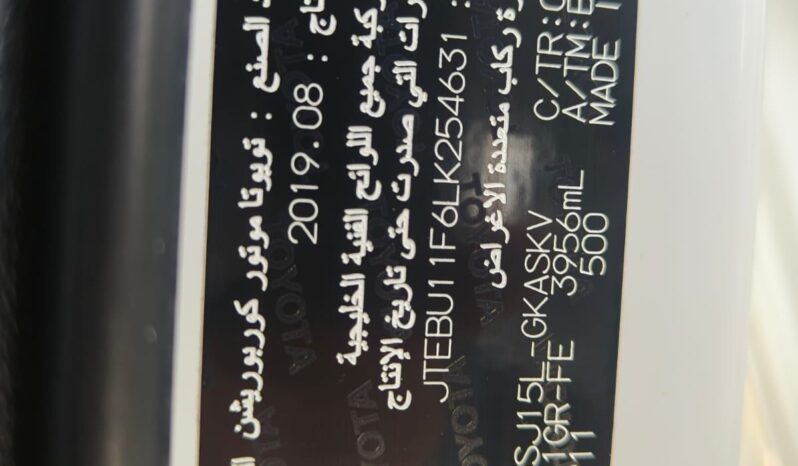 الصنع : تويوتا موتور كوربوريشن
2019.08 :
جميع اللوائح الفنية الخليجية
التي صدرت حتى تاريخ الإنتاج
JTEBU11F6LK254631 :
ركاب متعددة الاغراض
SJ15L-GKASKV C/TR:
1GR-FE 3956mL A/TM:
500 MADE
TOYOTA